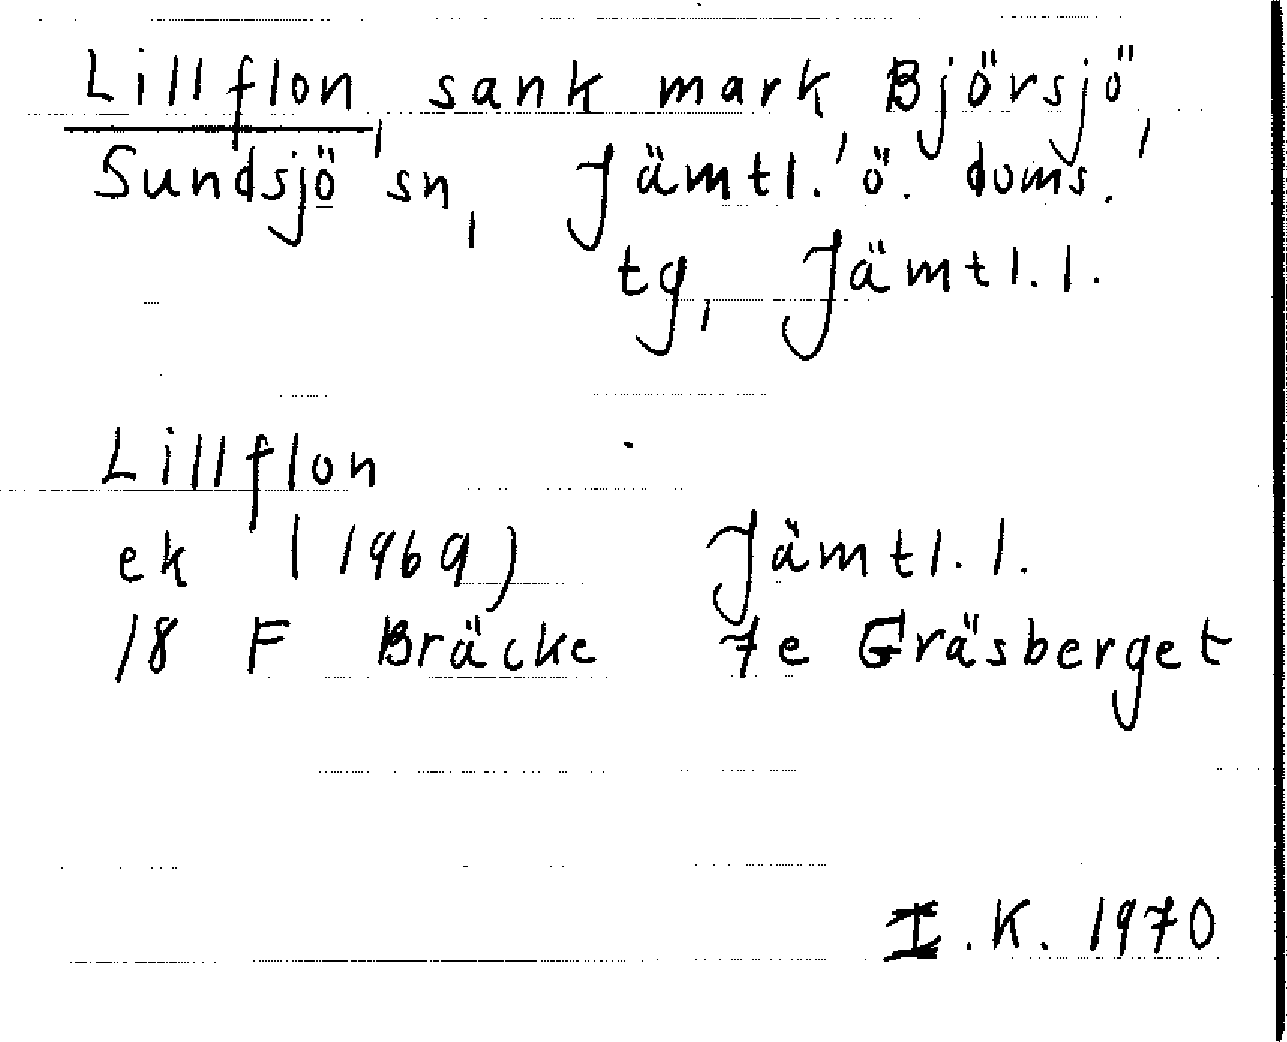 Lillflon, sank mark, Björsjö,
Sundsjö sn, Jämtl. ö. doms.
tg, Jämtl. l.
Lillflon
ek (1969) Jämtl. l.
18 F Bräcke 7e Gräsberget
I.K. 1970